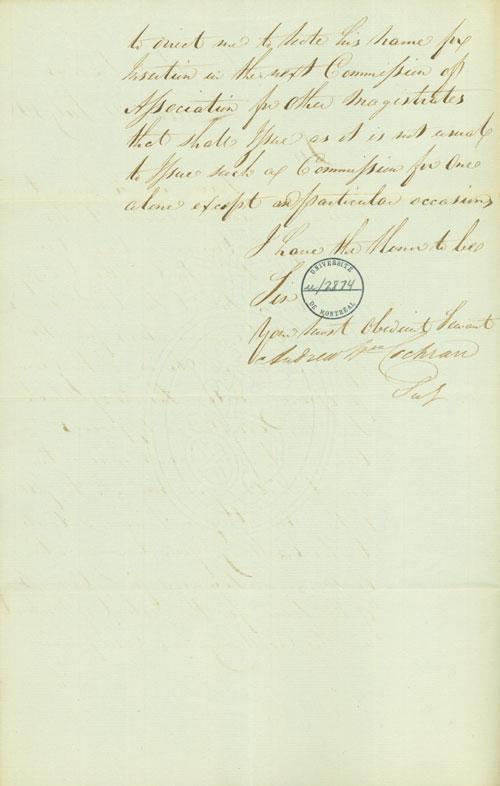 to direct me to Note his name for
Insertion in the next Commission of
Association for other Magistrates
that shall Issue as it is not usual
to Issue such a Commission for One
alone except on particular occasions
I have the Honor to be
UNIVERSITÉ
u/2874
DE MONTREAL
Sir
Your most Obedient Servant
Andrew Wm Cochran
Secy